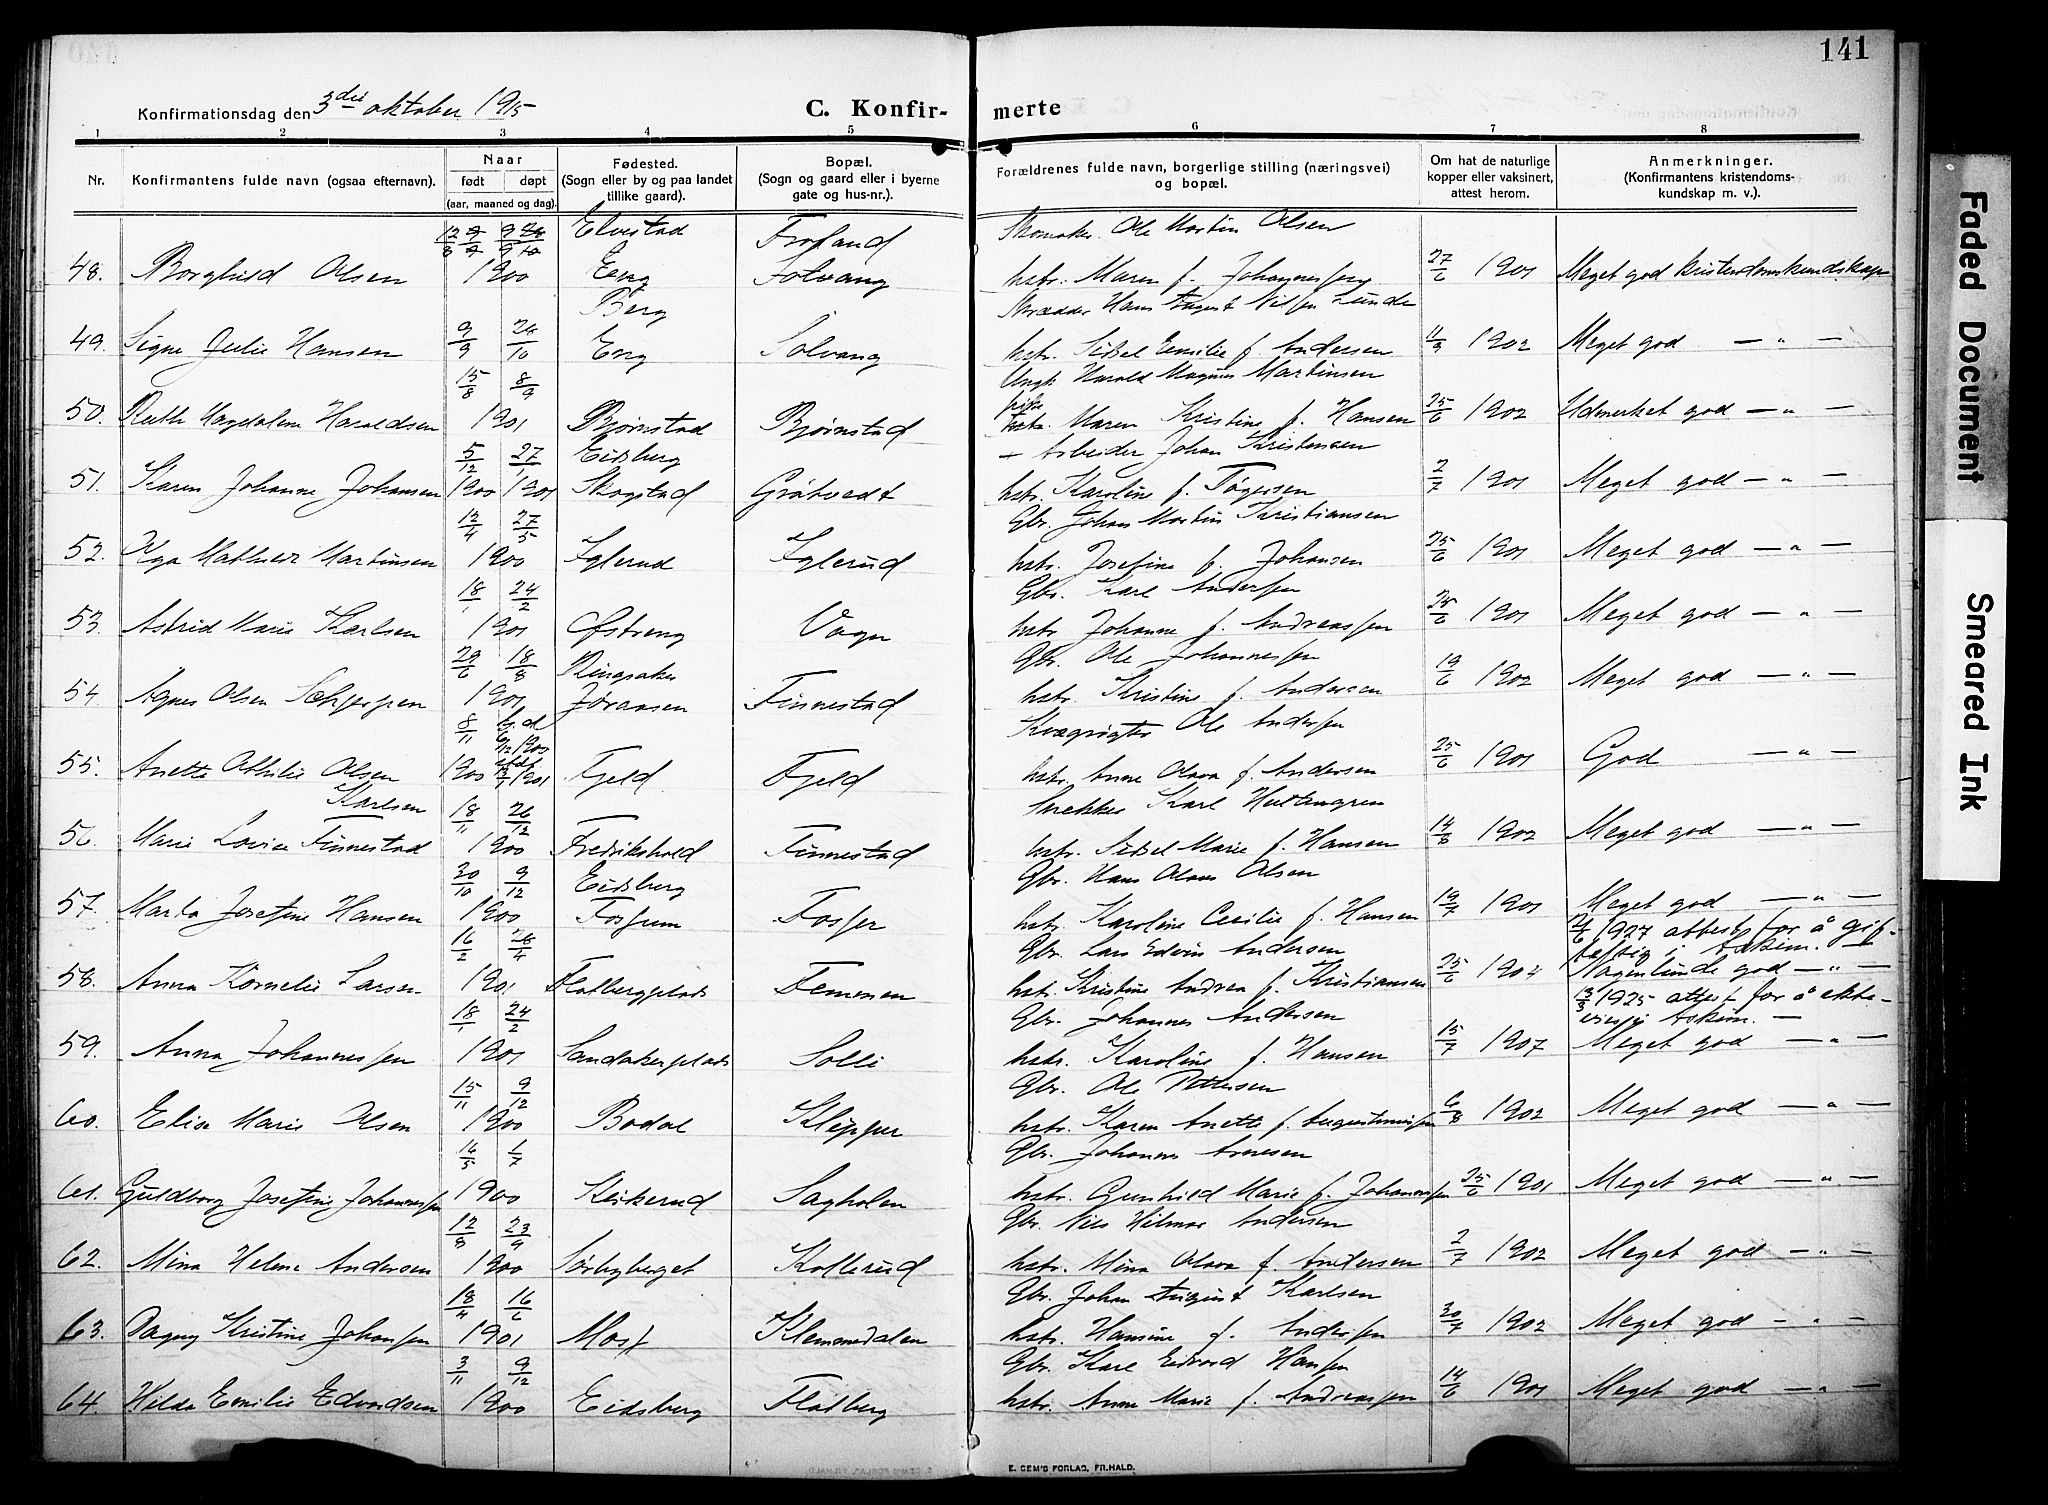 141
Konfirmationsdag den 3die oktober 1915
C. Konfir- merte
1 2 3 4 5 6 7 8
Nr. Konfirmantens fulde navn (ogsaa efternavn). Naar født døpt (aar, maaned og dag). Fødested. (Sogn eller by og paa landet tillike gaard). Bopæl. (Sogn og gaard eller i byerne gate og hus-nr.). Forældrenes fulde navn, borgerlige stilling (næringsvei) og bopæl. Om hat de naturlige kopper eller vaksinert, attest herom. Anmerkninger. (Konfirmantens kristendoms-kundskap m. v.).
Ole Martin Olsen
48. Borghild Olsen 1900 Eng Solvang hstr. Maren f. Johannessen 27/6 1901 Meget god kristendomskundskap
Berg Skrædder Hans August Nilsen Lunde
49. Signe Julie Hansen 9/9 26/10 Eng Solvang hstr. Sidsel Emilie f. Andersen 1902 Meget god — „ —
15/8 8/9 Ungk. Harald Magnus Martinsen
50. Ruth Magdalene Haraldsen 1901 Bjørnstad Bjørnstad Maren Kristine f. Hansen 25/6 1902 Udmerket god — „ —
5/12 27/1 Eidsberg Arbeider Johan Kristensen
51. Karen Johanne Johansen 1900 1901 Skogstad Gråtvedt hstr. Karoline f. Tøgersen 2/7 1901 Meget god — „ —
12/4 27/5 Gbr. Johan Martin Kristiansen
52. Olga Mathilde Martinsen 1900 Iglerud Iglerud hstr. Josefine f. Johansen 25/6 1901 Meget god — „ —
18/1 24/2 Gbr. Karl Andersen
53. Astrid Marie Karlsen 1901 Østreng Vagn hstr. Johanne f. Andreassen 1901 Meget god — „ —
29/6 18/8 Ringsaker Gbr. Ole Johannessen
54. Agnes Olsen 1901 Finnestad hstr. Kristine f. Andersen 19/6 1902 Meget god — „ —
8/11 Kvægrøgter Ole Andersen
55. Anette Othilie Olsen 1900 1901 Fjeld Fjeld hstr. Anne Olava f. Andersen 25/6 1901 God — „ —
Karlsen 18/11 26/12 Karl
56. Marie Lovise Finnestad 1900 Fredrikshald Finnestad hstr. Sidsel Marie f. Hansen 1902 Meget god — „ —
30/10 9/12 Eidsberg Gbr. Hans Olaus Olsen
57. Marta Josefine Hansen 1900 Fosser hstr. Karoline Cecilie f. Hansen 19/7 1901 Meget god — „ —
16/2 Gbr. Lars Edvin Andersen 1927 attest for å gif-
te sig i Askim. —
58. Anna Kornelie Larsen 1901 Flatbergplads hstr. Kristine Andrea f. Kristiansen 25/6 god — „ —
18/1 24/2 Gbr. Johannes Andersen 1925 attest for å ekte-
vies i Askim. —
59. Anna Johannessen 1901 Sandakerplads Solli hstr. Karoline f. Hansen 15/7 1907 Meget god — „ —
15/11 9/12 Gbr. Ole Pettersen
60. Elise Marie Olsen 1900 Bodal Klepper hstr. Karen Anette f. Augustinussen 1902 Meget god — „ —
16/5 1/7 Gbr. Johannes Arnesen
61. Guldborg Josefine Johannessen 1900 Kirkerud Sagholen hstr. Gunhild Marie f. Johannessen 25/6 1901 Meget god — „ —
12/8 23/9 Gbr. Nils Hilmar Andersen
62. Mina Helene Andersen 1900 Sørbyberget Kollerud hstr. Mina Olava f. Andersen 2/7 1902 Meget god — „ —
18/4 16/6 Gbr. Johan August Karlsen
63. Dagny Kristine Johansen 1901 Moss Klemmedalen hstr. Hansine f. Andersen 30/7 1902 Meget god — „ —
3/11 9/12 Gbr. Karl Edvard Hansen
64. Hilda Emilie Edvardsen 1900 Eidsberg Flatberg hstr. Anne Marie f. Andreassen 14/6 1901 Meget god — „ —
E. GEM'S FORLAG, FR.HALD.
Faded Document
Smeared Ink